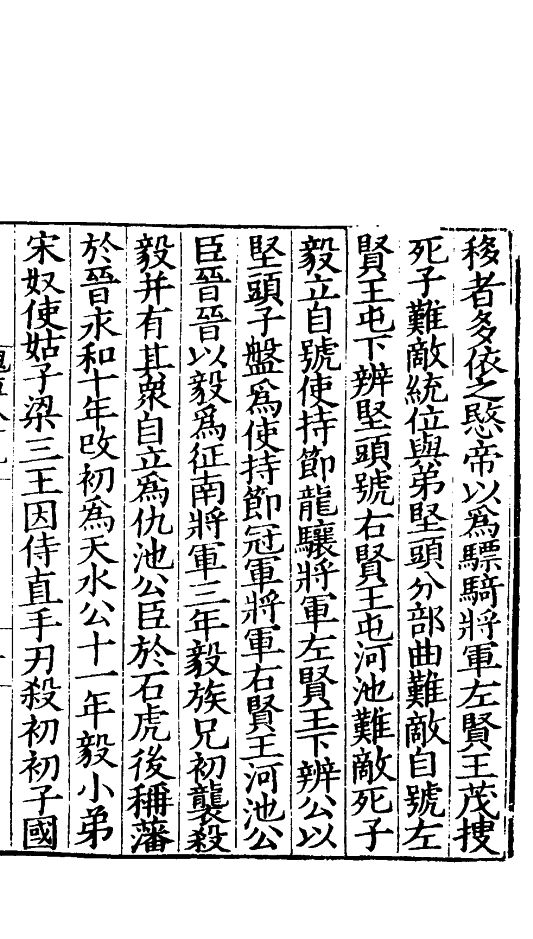 移者多依之愍帝以爲驃騎將軍左賢王茂搜
死子難敵統位與弟堅頭分部曲難敵自號左
賢王屯下辨堅頭號右賢王屯河池難敵死子
毅立自號使持節龍驤將軍左賢王下辨公以
堅頭子盤爲使持節冠軍將軍右賢王河池公
臣晉晉以毅爲征南將軍三年毅族兄初襲殺
毅并有其衆自立爲仇池公臣於石虎後稱藩
於晉永和十年改初爲天水公十一年毅小弟
宋奴使姑子梁三王因侍直手刃殺初初子國